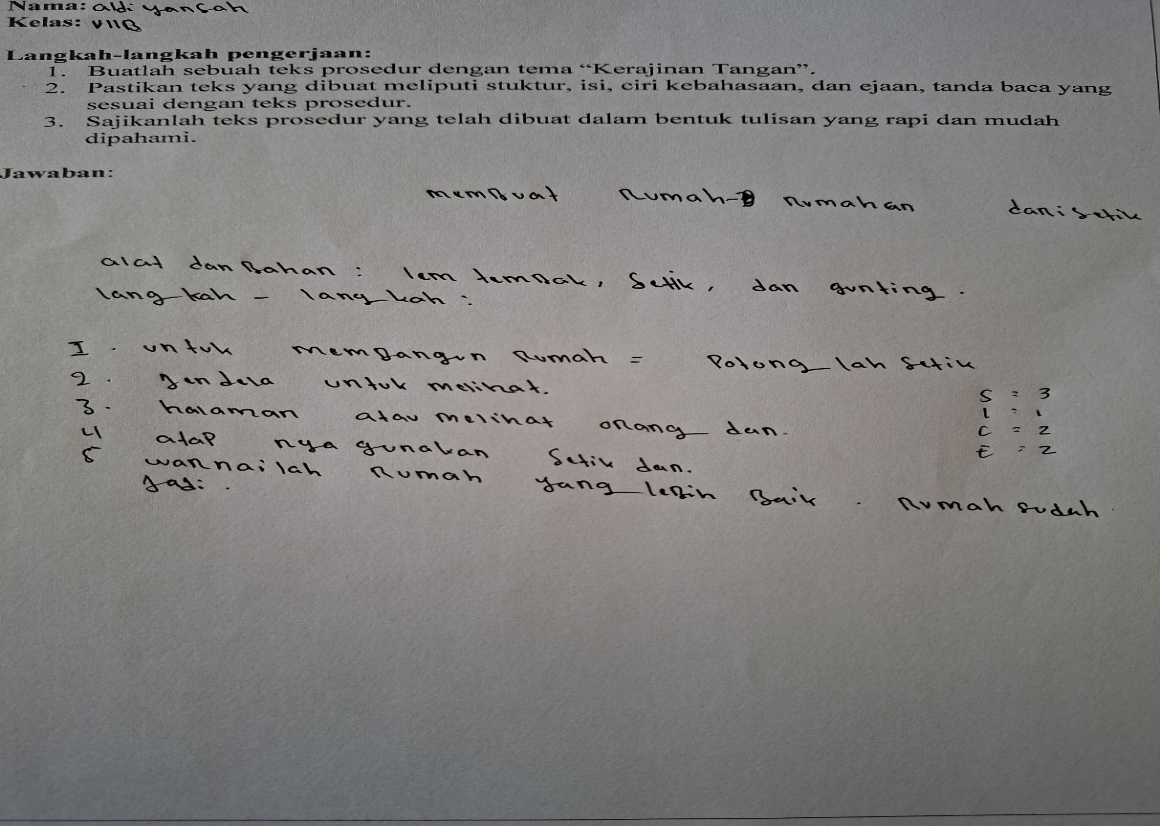 Nama: aldi yansah
Kelas: VIIB
Langkah-langkah pengerjaan:
1. Buatlah sebuah teks prosedur dengan tema “Kerajinan Tangan”.
2. Pastikan teks yang dibuat meliputi stuktur, isi, ciri kebahasaan, dan ejaan, tanda baca yang
sesuai dengan teks prosedur.
3. Sajikanlah teks prosedur yang telah dibuat dalam bentuk tulisan yang rapi dan mudah
dipahami.
Jawaban:
membuat Rumah- Rumahan dari setik
alat dan Bahan : lem tembak, Setik, dan gunting.
langkah - langkah :
I. untuk membangun Rumah = Potong lah setik
2. jendela untuk melihat.
3. halaman atau melihat orang dan.
4 atap nya gunakan Setik dan.
5 warnailah Rumah yang lebih Baik. Rumah sudah
jadi.
S = 3
I = 1
C = 2
E = 2